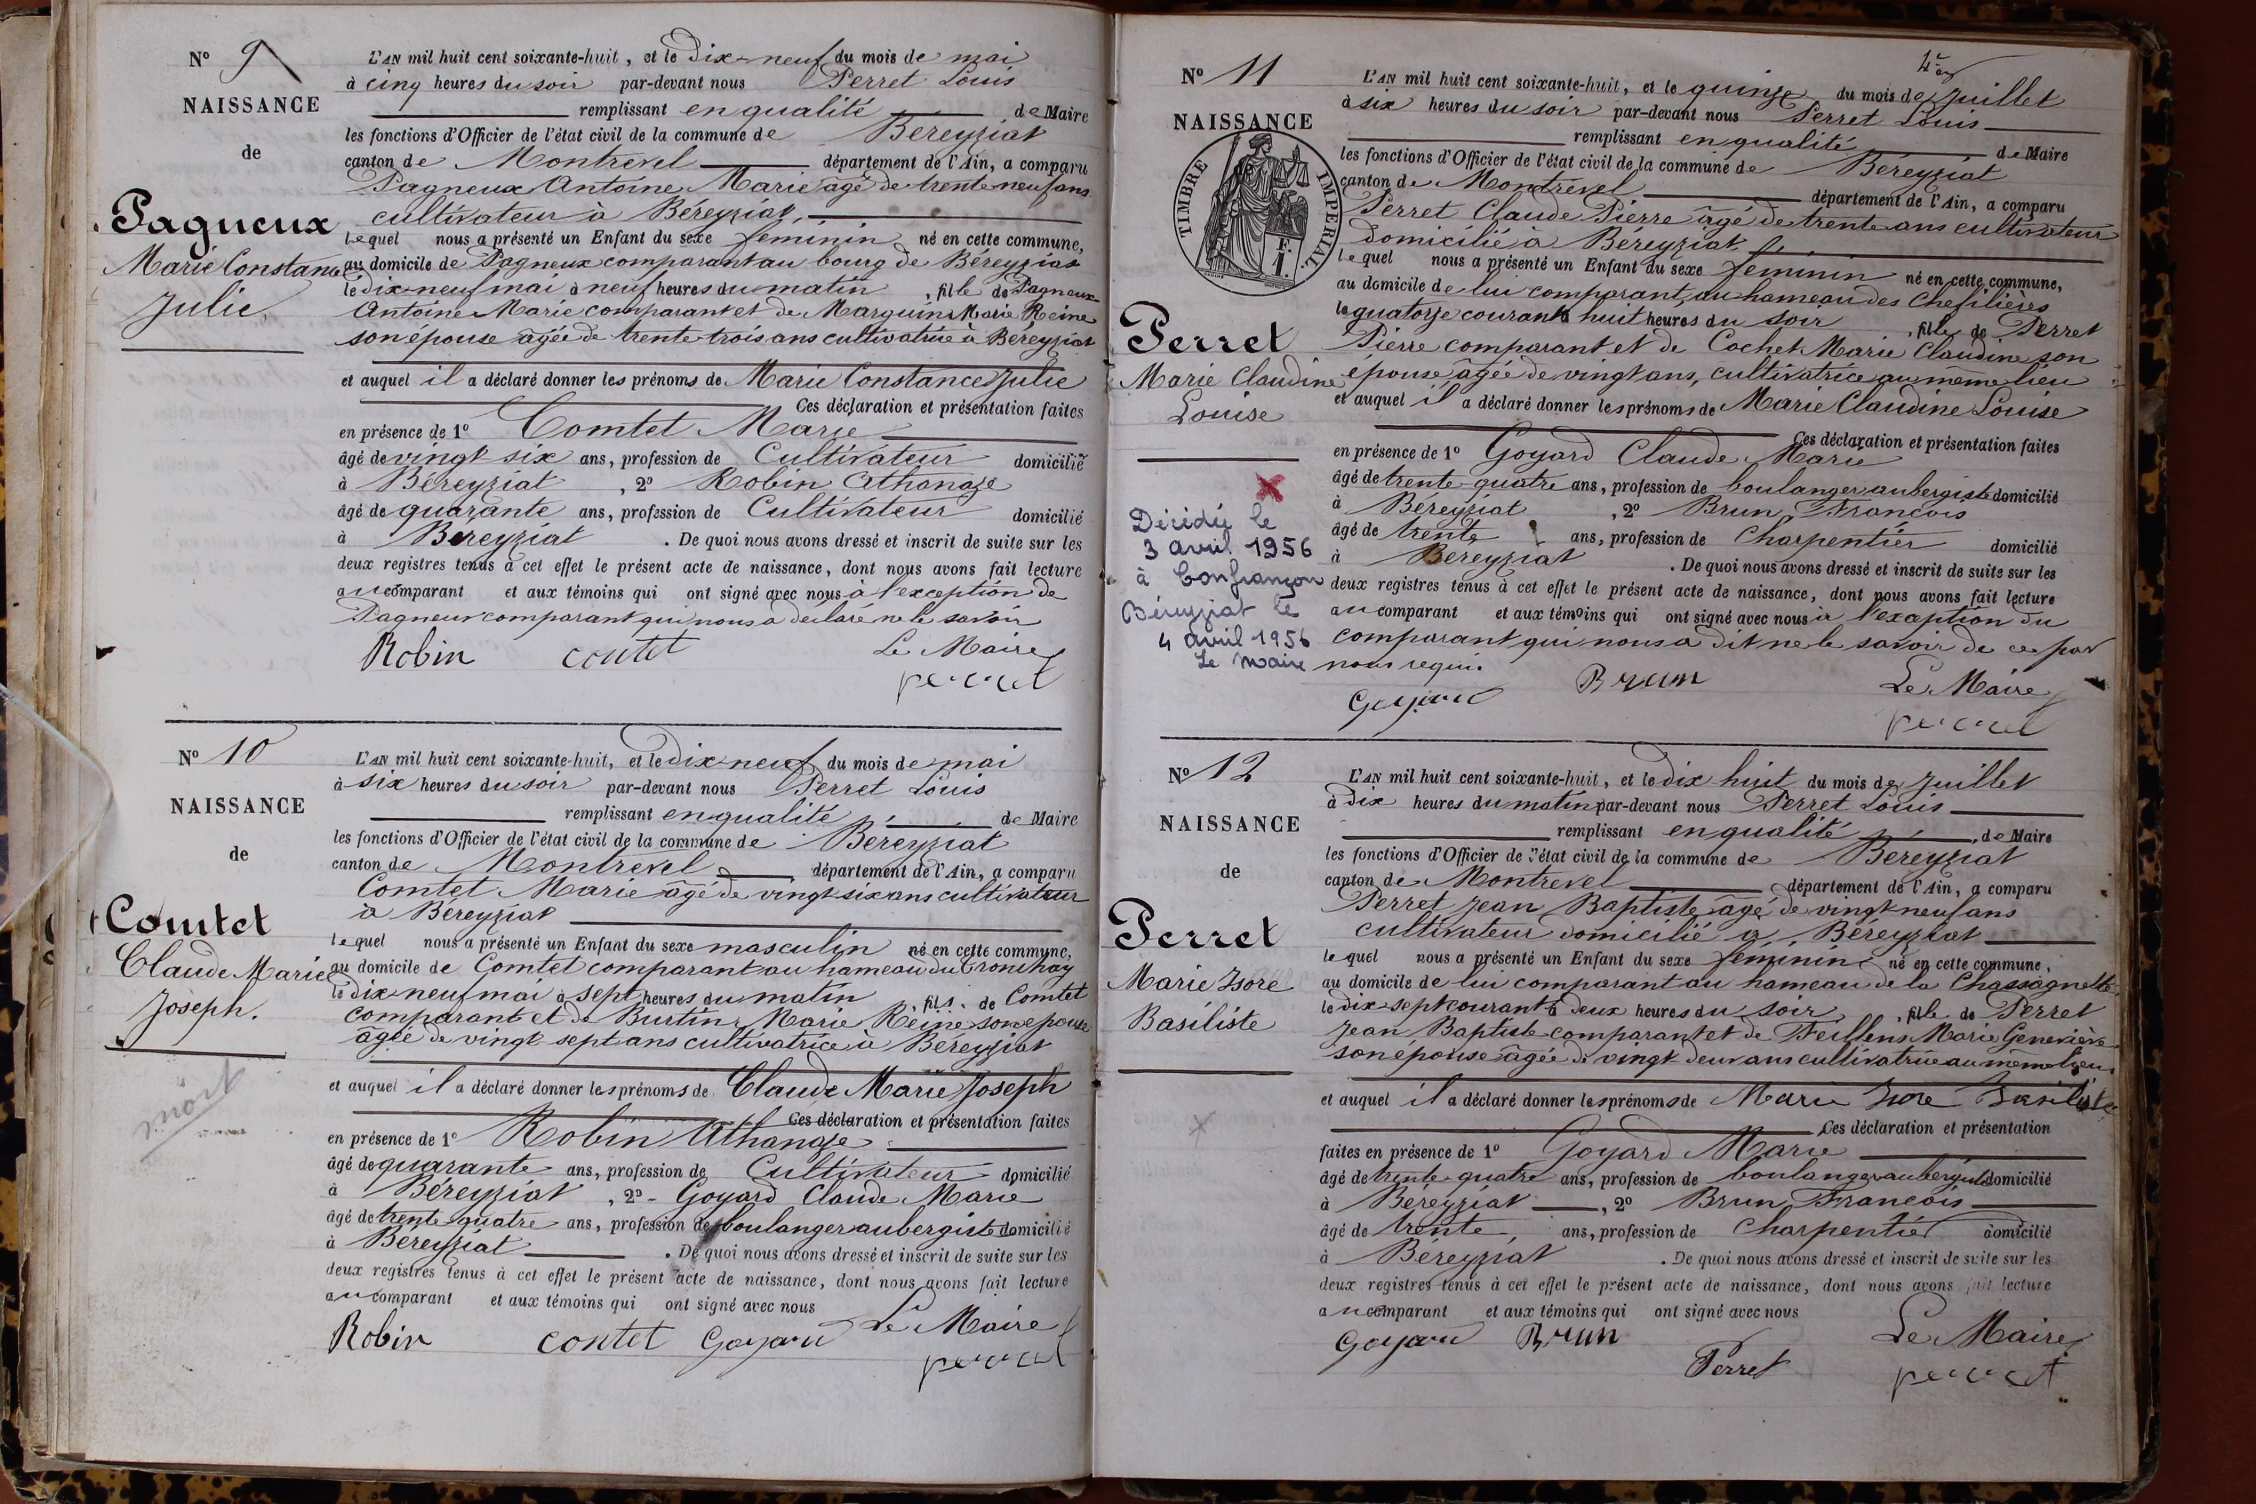 Nº 9
NAISSANCE
de
Pagneux
Marie Constance
Julie.
L'AN mil huit cent soixante-huit, et le Dix-neuf du mois de mai
à cinq heures du soir par-devant nous Perret Louis
remplissant en qualité de Maire
les fonctions d'Officier de l'état civil de la commune de Béreyziat
canton de Montrevel département de l'Ain, a comparu
Pagneux Antoine Marie âgé de trente neuf ans
cultivateur à Béreyziat,
lequel nous a présenté un Enfant du sexe féminin né en cette commune,
au domicile de Pagneux comparant au bourg de Béreyziat
le dix-neuf mai à neuf heures du matin, fille de Pagneux
Antoine Marie comparant et de Marguin Marie Reine
son épouse âgée de trente trois ans cultivatrice à Béreyziat
et auquel il a déclaré donner les prénoms de Marie Constance Julie
Ces déclaration et présentation faites
en présence de 1º Comtet Marie
âgé de vingt six ans, profession de Cultivateur domicilié
à Béreyziat, 2º Robin Athanaze
âgé de quarante ans, profession de Cultivateur domicilié
à Béreyziat. De quoi nous avons dressé et inscrit de suite sur les
deux registres tenus à cet effet le présent acte de naissance, dont nous avons fait lecture
au comparant et aux témoins qui ont signé avec nous à l'exception de
Pagneux comparant qui nous a déclaré ne le savoir
Robin contet Le Maire
perret
Nº 10
NAISSANCE
de
Comtet
Claude Marie
Joseph.
mort
L'AN mil huit cent soixante-huit, et le Dix-neuf du mois de mai
à six heures du soir par-devant nous Perret Louis
remplissant en qualité de Maire
les fonctions d'Officier de l'état civil de la commune de Béreyziat
canton de Montrevel département de l'Ain, a comparu
Comtet Marie âgé de vingt six ans cultivateur
à Béreyziat
lequel nous a présenté un Enfant du sexe masculin né en cette commune,
au domicile de Comtet comparant au hameau du Tronchay
le dix-neuf mai à sept heures du matin, fils de Comtet
comparant et de Burtin Marie Reine son épouse
âgée de vingt sept ans cultivatrice à Béreyziat
et auquel il a déclaré donner les prénoms de Claude Marie Joseph
Ces déclaration et présentation faites
en présence de 1º Robin Athanaze
âgé de quarante ans, profession de Cultivateur domicilié
à Béreyziat, 2º Goyard Claude Marie
âgé de trente quatre ans, profession de boulanger aubergiste domicilié
à Béreyziat. De quoi nous avons dressé et inscrit de suite sur les
deux registres tenus à cet effet le présent acte de naissance, dont nous avons fait lecture
au comparant et aux témoins qui ont signé avec nous
Robin contet Goyard Le Maire
perret
Nº 11
NAISSANCE
TIMBRE IMPERIAL.
Perret
Marie Claudine
Louise
Décédée le
3 avril 1956
à Confrançon
Béreyziat le
4 avril 1956
Le Maire
L'AN mil huit cent soixante-huit, et le quinze du mois de Juillet
à six heures du soir par-devant nous Perret Louis
remplissant en qualité de Maire
les fonctions d'Officier de l'état civil de la commune de Béreyziat
canton de Montrevel département de l'Ain, a comparu
Perret Claude Pierre âgé de trente ans cultivateur
domicilié à Béreyziat
lequel nous a présenté un Enfant du sexe féminin né en cette commune,
au domicile de lui comparant, au hameau des Chefilières
le quatorze courant à huit heures du soir, fille de Perret
Pierre comparant et de Cochet Marie Claudine son
épouse âgée de vingt ans, cultivatrice au même lieu
et auquel il a déclaré donner les prénoms de Marie Claudine Louise
Ces déclaration et présentation faites
en présence de 1º Goyard Claude Marie
âgé de trente-quatre ans, profession de boulanger aubergiste domicilié
à Béreyziat, 2º Brun François
âgé de trente ans, profession de Charpentier domicilié
à Béreyziat. De quoi nous avons dressé et inscrit de suite sur les
deux registres tenus à cet effet le présent acte de naissance, dont nous avons fait lecture
au comparant et aux témoins qui ont signé avec nous à l'exaption du
comparant qui nous a dit ne le savoir de ce par
nous requis.
Goyard Brun Le Maire
perret
Nº 12
NAISSANCE
de
Perret
Marie Isore
Basiliste
L'AN mil huit cent soixante-huit, et le dix huit du mois de Juillet
à dix heures du matin par-devant nous Perret Louis
remplissant en qualité de Maire
les fonctions d'Officier de l'état civil de la commune de Béreyziat
canton de Montrevel département de l'Ain, a comparu
Perret Jean Baptiste âgé de vingt neuf ans
cultivateur domicilié à Béreyziat
lequel nous a présenté un Enfant du sexe féminin né en cette commune,
au domicile de lui comparant au hameau de la Chassagnette
le dix-sept courant à deux heures du soir, fille de Perret
Jean Baptiste comparant et de Feillens Marie Geneviève
son épouse âgée de vingt deux ans cultivatrice au même lieu
et auquel il a déclaré donner les prénoms de Marie Isore Basiliste
Ces déclaration et présentation
faites en présence de 1º Goyard Marie
âgé de trente quatre ans, profession de boulanger aubergiste domicilié
à Béreyziat, 2º Brun François
âgé de trente ans, profession de Charpentier domicilié
à Béreyziat. De quoi nous avons dressé et inscrit de suite sur les
deux registres tenus à cet effet le présent acte de naissance, dont nous avons fait lecture
au comparant et aux témoins qui ont signé avec nous
Goyard Brun Le Maire
Perret perret